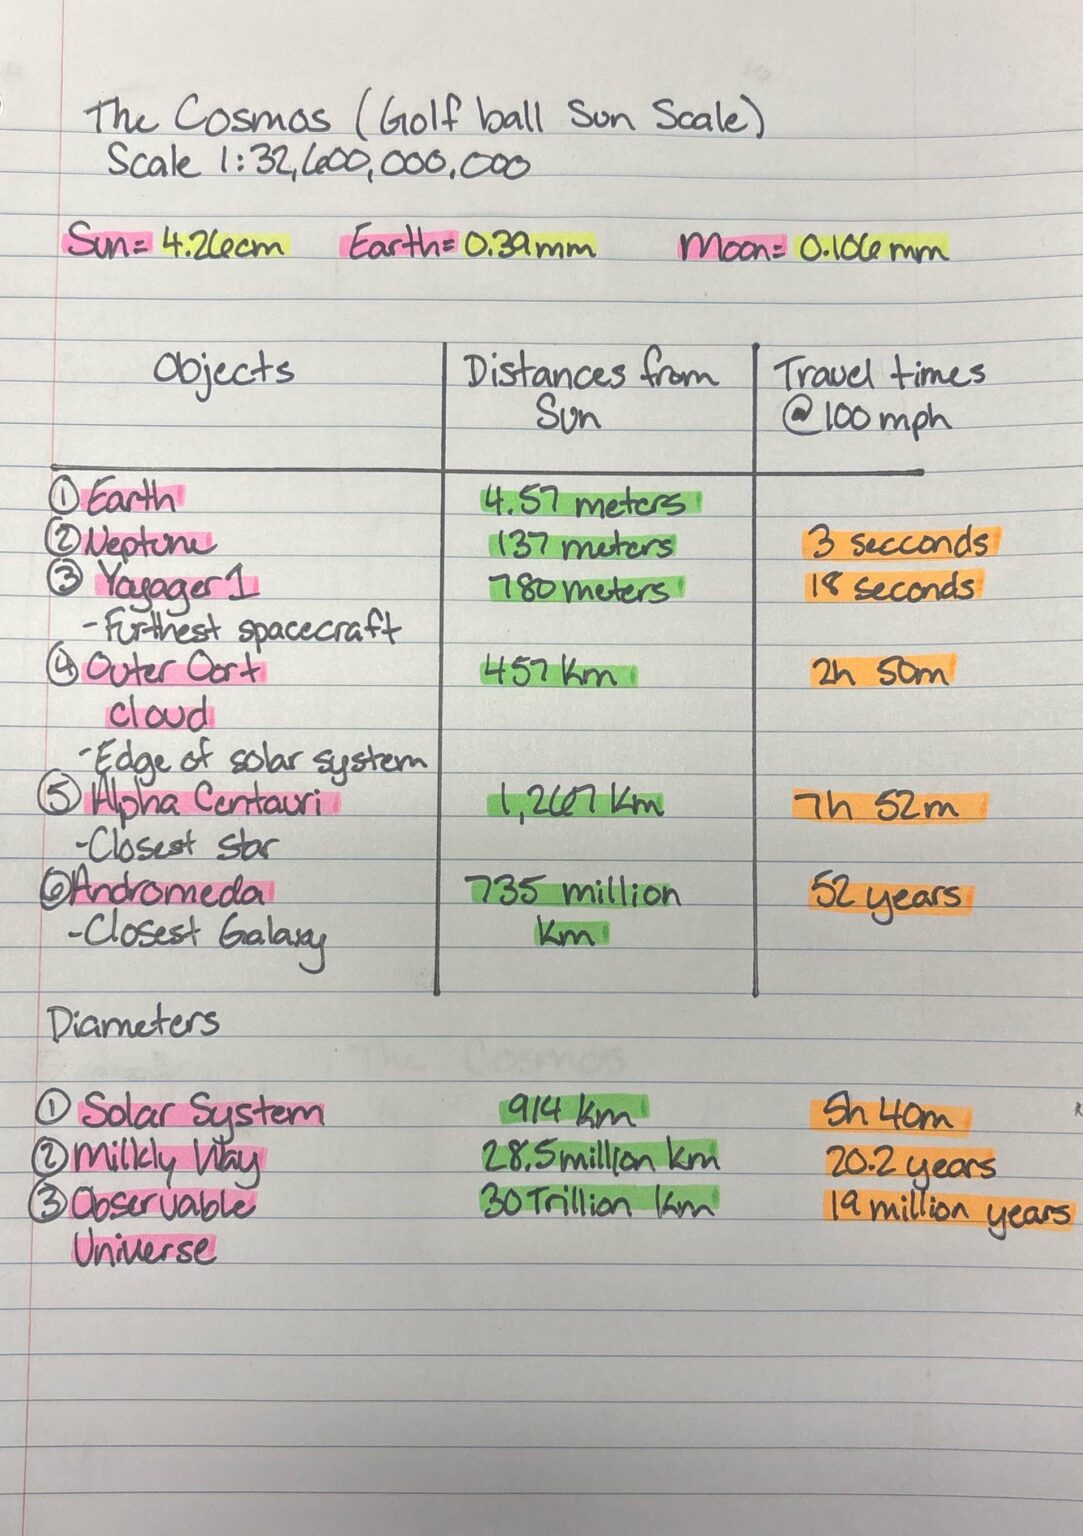 The Cosmos (Golf ball Sun Scale)
Scale 1:32,600,000,000
Sun= 4.26cm Earth= 0.39mm Moon= 0.106mm
Objects Distances from Sun Travel times @100mph
① Earth 4.57 meters
② Neptune 137 meters 3 secconds
③ Voyager 1 780 meters 18 seconds
-Furthest spacecraft
④ Outer Oort 457 km 2h 50m
cloud
-Edge of solar system
⑤ Alpha Centauri 1,267 km 7h 52m
-Closest star
⑥ Andromeda 735 million 52 years
-Closest Galaxy km
Diameters
① Solar System 914 km 5h 40m
② Milkly Way 28.5 million km 20.2 years
③ Observable 30 Trillion km 19 million years
Universe